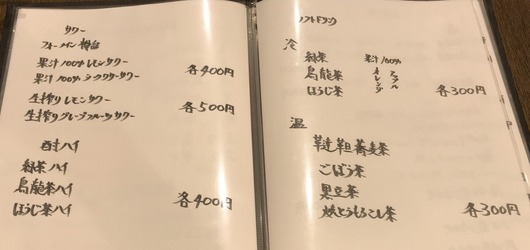 サワー
果汁100%レモンサワー
果汁100%シークワーサーサワー
各400円
生搾りレモンサワー
生搾りグレープフルーツサワー
各500円
酎ハイ
緑茶ハイ
烏龍茶ハイ
ほうじ茶ハイ
各400円
ソフトドリンク
冷
緑茶
烏龍茶
ほうじ茶
果汁100%
オレンジ
アップル
各300円
温
韃靼蕎麦茶
ごぼう茶
黒豆茶
焼とうもろこし茶
各300円